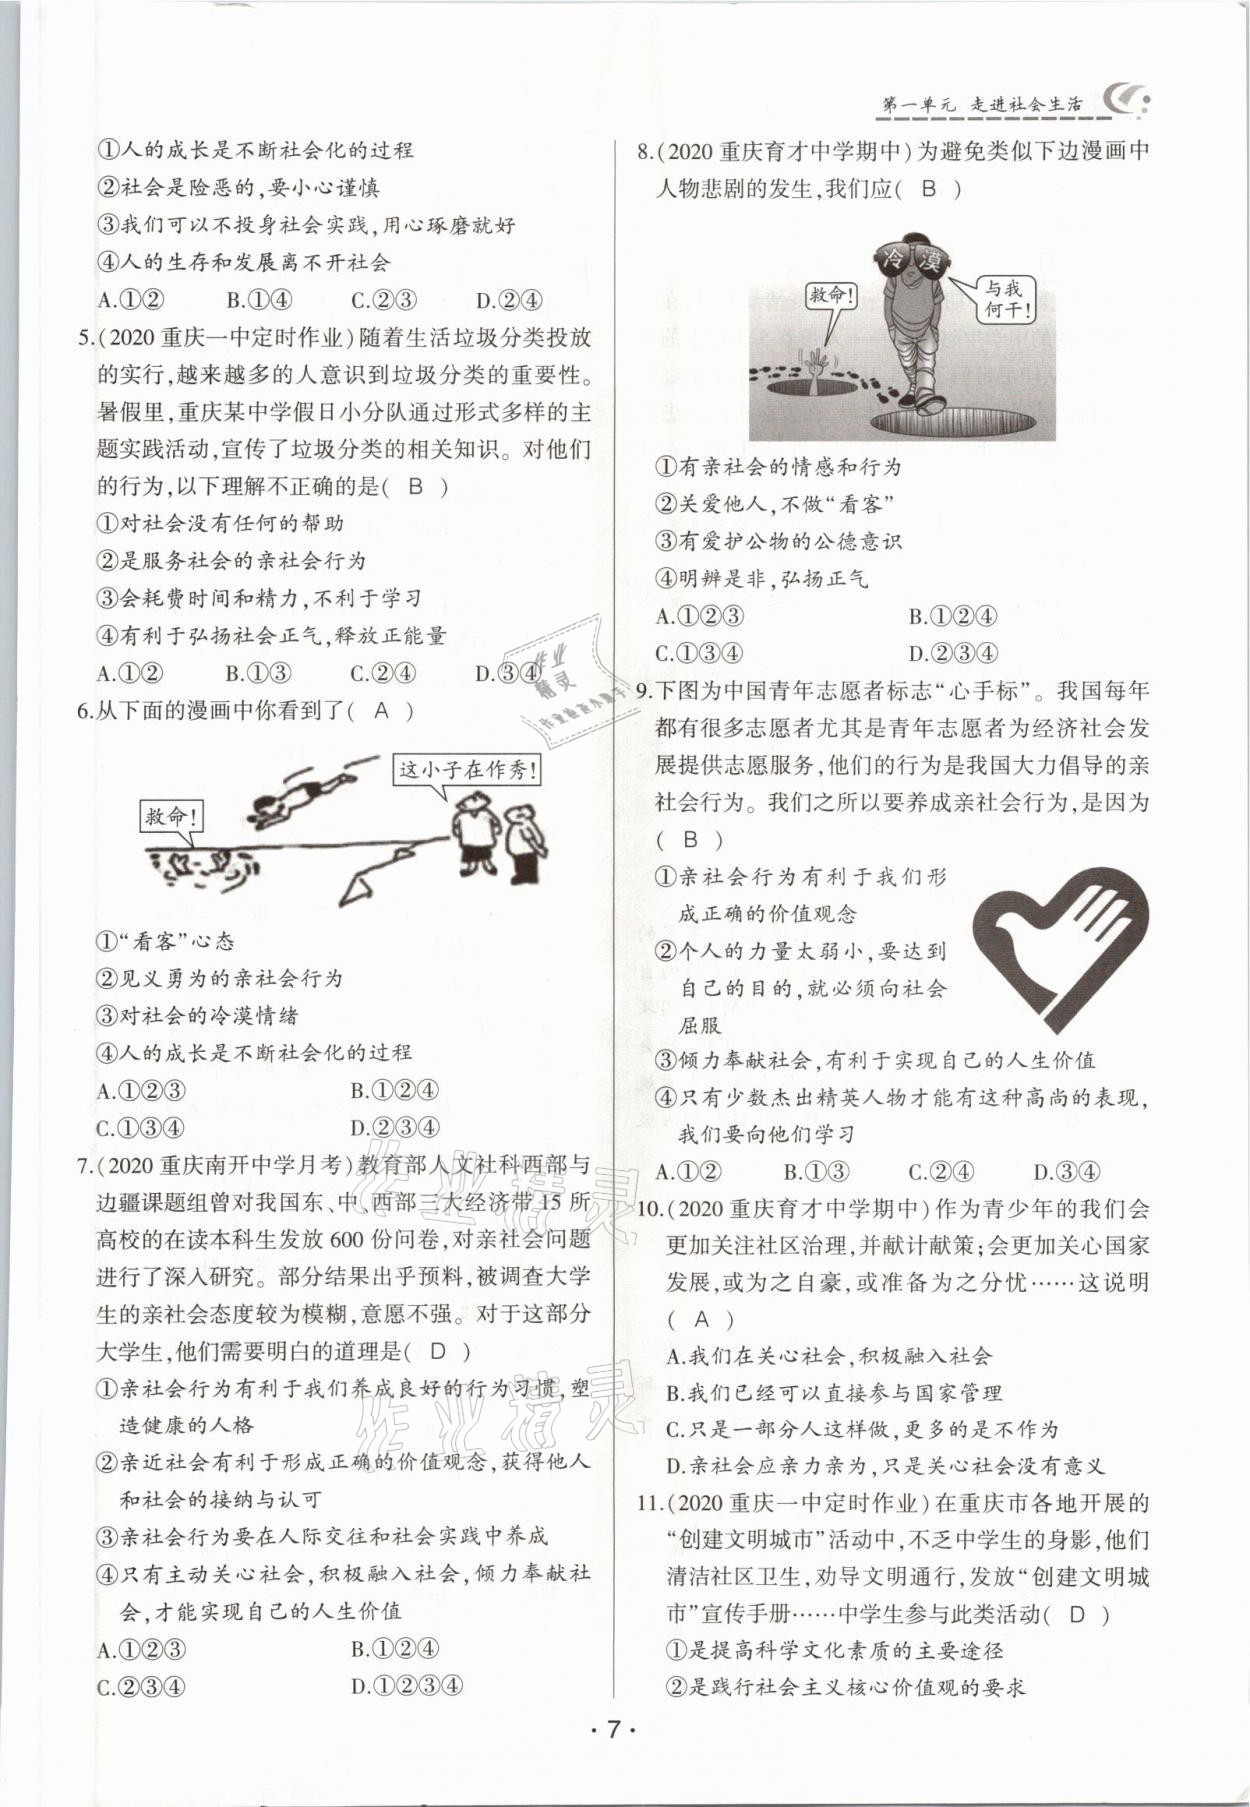 第一单元 走进社会生活
①人的成长是不断社会化的过程
②社会是险恶的,要小心谨慎
③我们可以不投身社会实践,用心琢磨就好
④人的生存和发展离不开社会
A.①② B.①④ C.②③ D.②④
5.(2020重庆一中定时作业)随着生活垃圾分类投放
的实行,越来越多的人意识到垃圾分类的重要性。
暑假里,重庆某中学假日小分队通过形式多样的主
题实践活动,宣传了垃圾分类的相关知识。对他们
的行为,以下理解不正确的是( B )
①对社会没有任何的帮助
②是服务社会的亲社会行为
③会耗费时间和精力,不利于学习
④有利于弘扬社会正气,释放正能量
A.①② B.①③ C.②④ D.③④
6.从下面的漫画中你看到了( A )
这小子在作秀!
救命!
①“看客”心态
②见义勇为的亲社会行为
③对社会的冷漠情绪
④人的成长是不断社会化的过程
A.①②③ B.①②④
C.①③④ D.②③④
7.(2020重庆南开中学月考)教育部人文社科西部与
边疆课题组曾对我国东、中、西部三大经济带15所
高校的在读本科生发放600份问卷,对亲社会问题
进行了深入研究。部分结果出乎预料,被调查大学
生的亲社会态度较为模糊,意愿不强。对于这部分
大学生,他们需要明白的道理是( D )
①亲社会行为有利于我们养成良好的行为习惯,塑
造健康的人格
②亲近社会有利于形成正确的价值观念,获得他人
和社会的接纳与认可
③亲社会行为要在人际交往和社会实践中养成
④只有主动关心社会,积极融入社会,倾力奉献社
会,才能实现自己的人生价值
A.①②③ B.①②④
C.②③④ D.①②③④
8.(2020重庆育才中学期中)为避免类似下边漫画中
人物悲剧的发生,我们应( B )
冷漠
救命!
与我
何干!
①有亲社会的情感和行为
②关爱他人,不做“看客”
③有爱护公物的公德意识
④明辨是非,弘扬正气
A.①②③ B.①②④
C.①③④ D.②③④
9.下图为中国青年志愿者标志“心手标”。我国每年
都有很多志愿者尤其是青年志愿者为经济社会发
展提供志愿服务,他们的行为是我国大力倡导的亲
社会行为。我们之所以要养成亲社会行为,是因为
( B )
①亲社会行为有利于我们形
成正确的价值观念
②个人的力量太弱小,要达到
自己的目的,就必须向社会
屈服
③倾力奉献社会,有利于实现自己的人生价值
④只有少数杰出精英人物才能有这种高尚的表现,
我们要向他们学习
A.①② B.①③ C.②④ D.③④
10.(2020重庆育才中学期中)作为青少年的我们会
更加关注社区治理,并献计献策;会更加关心国家
发展,或为之自豪,或准备为之分忧……这说明
( A )
A.我们在关心社会,积极融入社会
B.我们已经可以直接参与国家管理
C.只是一部分人这样做,更多的是不作为
D.亲社会应亲力亲为,只是关心社会没有意义
11.(2020重庆一中定时作业)在重庆市各地开展的
“创建文明城市”活动中,不乏中学生的身影,他们
清洁社区卫生,劝导文明通行,发放“创建文明城
市”宣传手册……中学生参与此类活动( D )
①是提高科学文化素质的主要途径
②是践行社会主义核心价值观的要求
作业
精灵
作业精灵
作业精灵
·7·